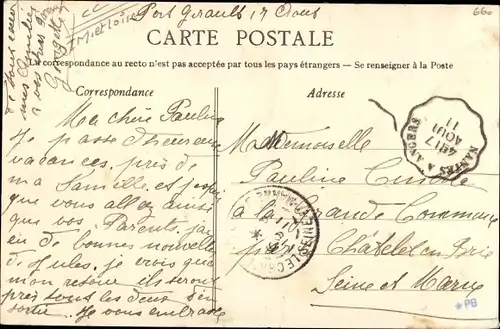 Port Girault, 17 Aout
(M. et Loire)
660
CARTE POSTALE
La correspondance au recto n'est pas acceptée par tous les pays étrangers. — Se renseigner à la Poste
Correspondance
Adresse
Ma chère Pauline
Je passe d'heureuses
vacances, près de
ma famille et j'espère
que vous allez ainsi
que vos Parents. J'ai
eu de bonnes nouvelles
de Jules, je crois que
mon retour ils seront
près tous les deux d'en
sortir. Je vous embrasse
Mademoiselle
Pauline
à la Grande Commune
par Châtelet en Brie
Seine et Marne
NANTES A ANGERS
17
AOUT
11
*PB